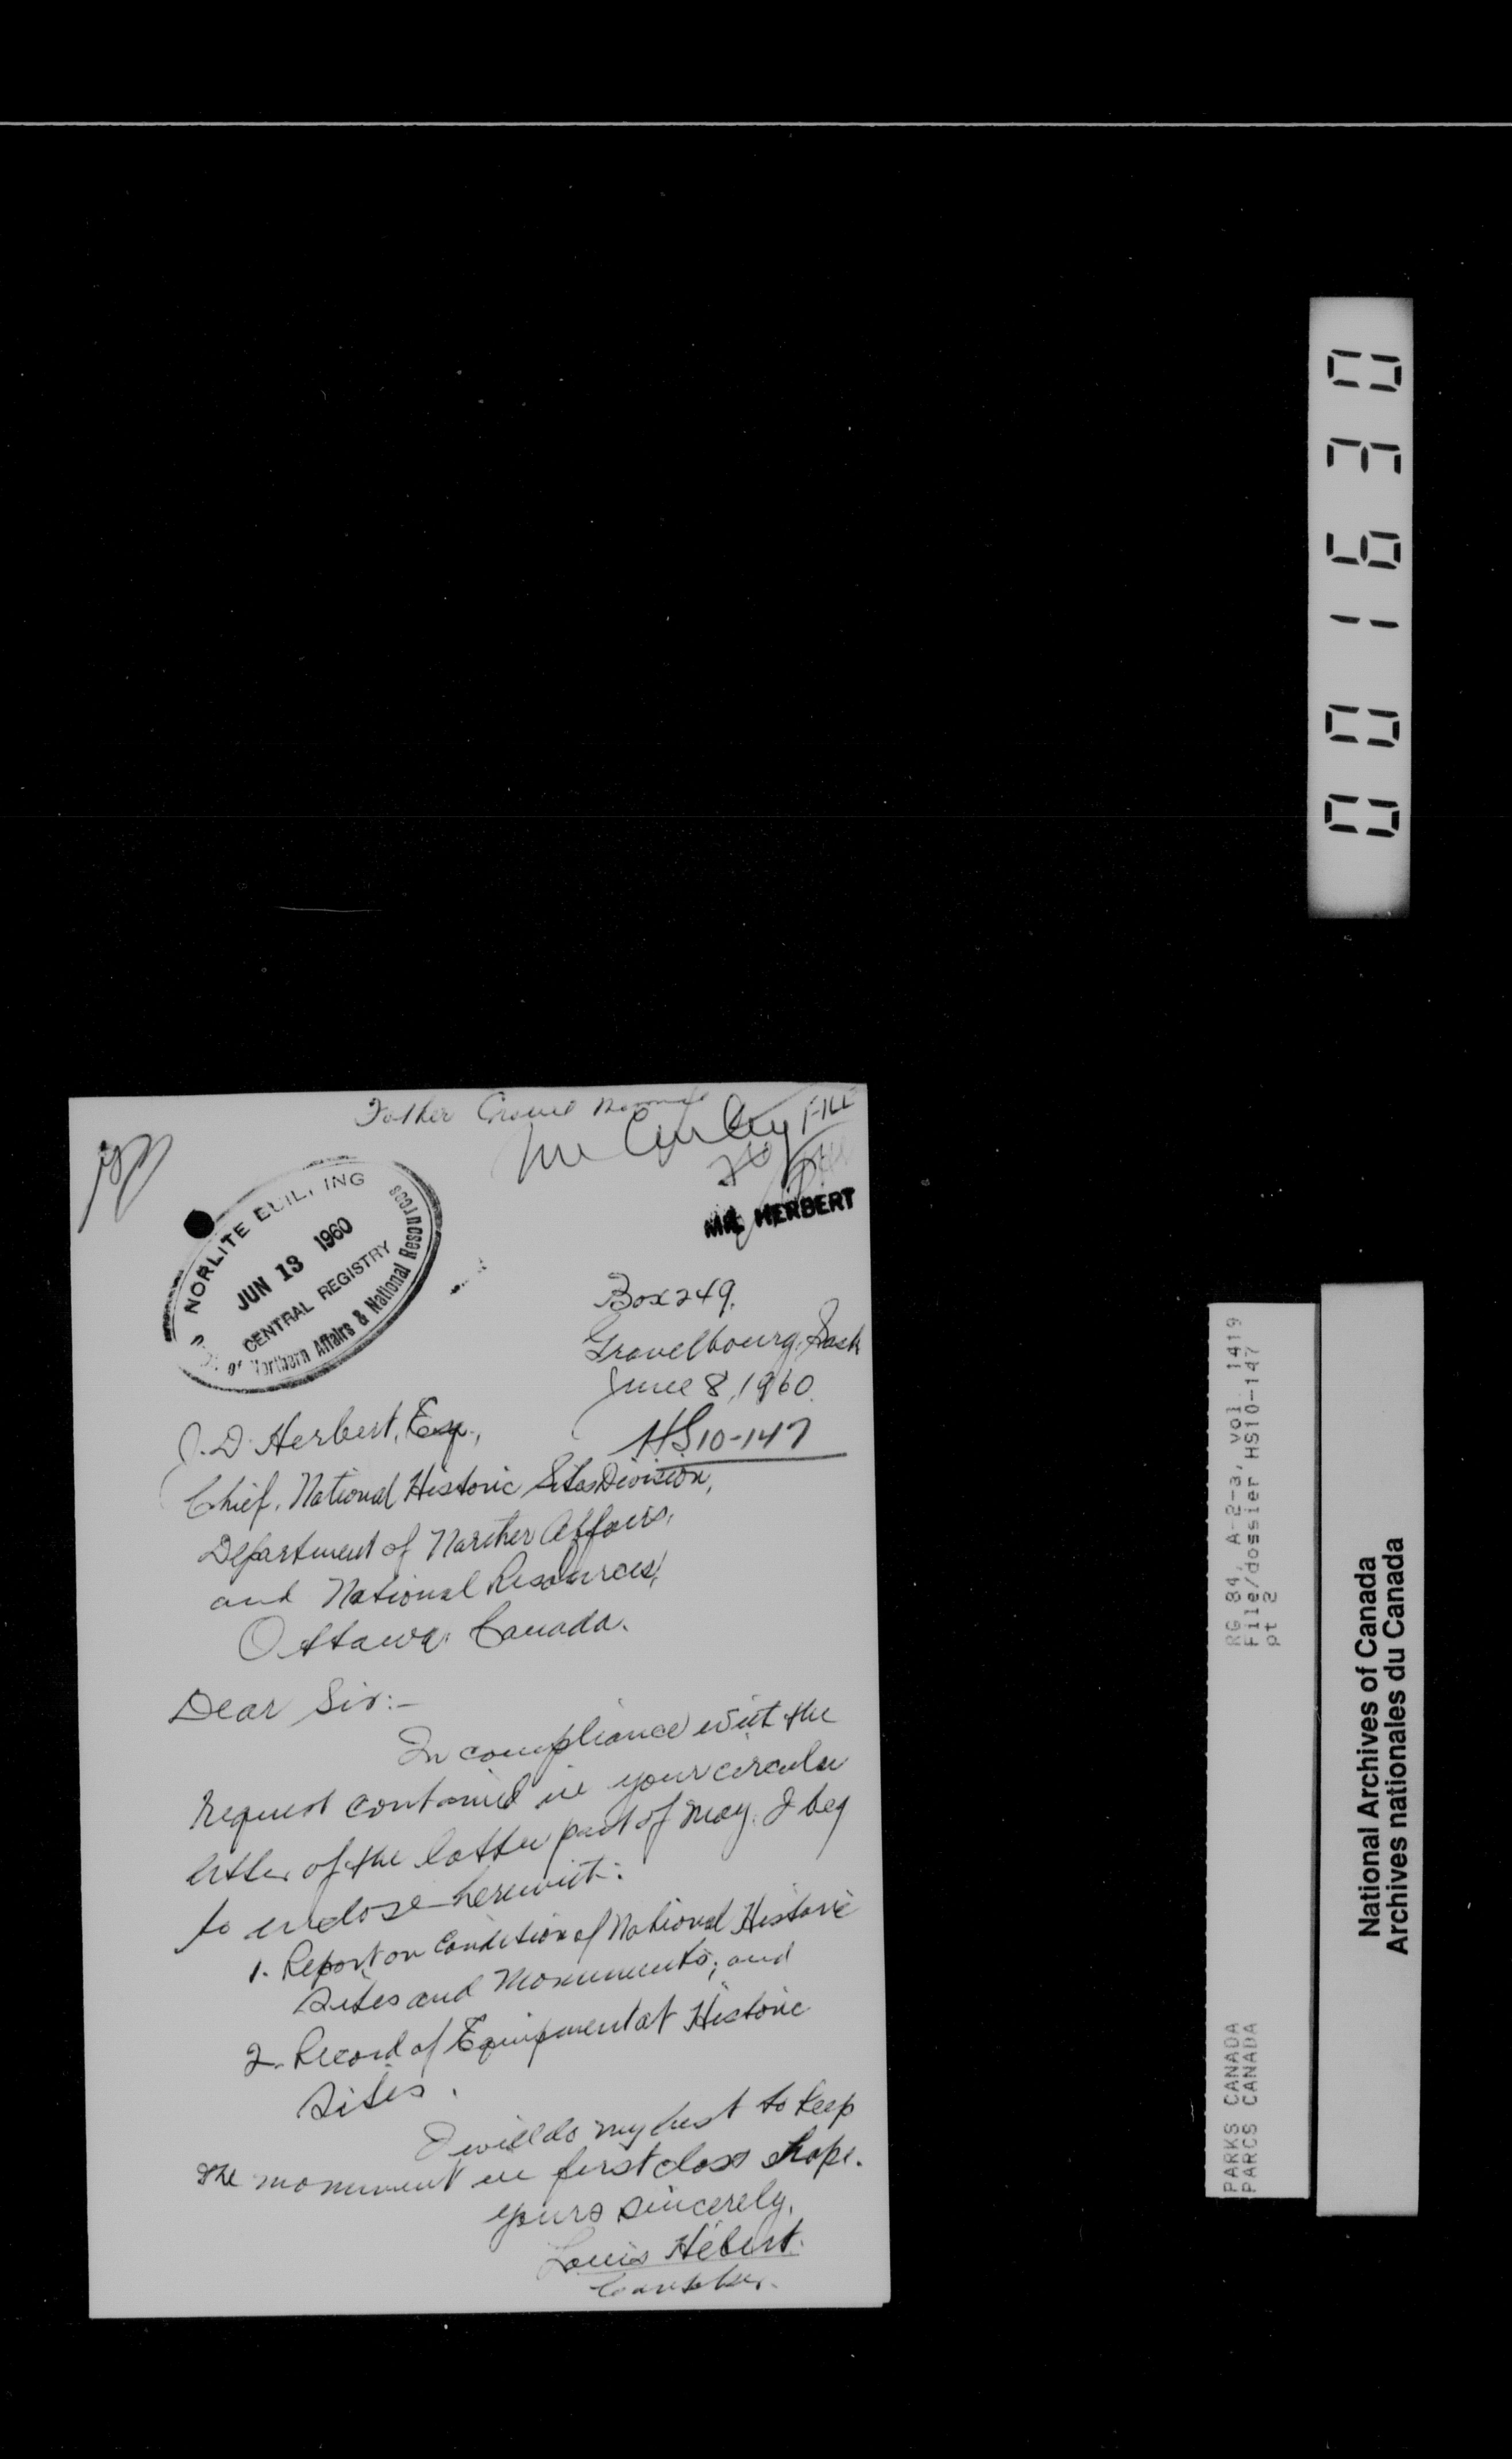 Father Gravel
Mr Curley
FILE
MR. HERBERT
NORLITE BUILDING
JUN 13 1960
CENTRAL REGISTRY
of Northern Affairs & National Resources
Box 249.
Gravelbourg, Sask
June 8, 1960.
HS10-147
J. D. Herbert, Esq.,
Chief, National Historic Sites Division,
Department of Norther Affairs,
and National Resources,
Ottawa, Canada.
Dear Sir:-
In compliance wiht the
request contained in your circular
letter of the latter part of May, I beg
to enclose herewiht:
1. Report on Condition of National Historic
Sites and Monuments; and
2. Record of Equipment at Historic
Sites.
I will do my best to keep
the monument in first class shape.
Yours sincerely,
Louis Hébert.
Caretaker.
001630
RG 84, A-2-a, vol. 1419
File/dossier HS10-147
pt 2
PARKS CANADA
PARCS CANADA
National Archives of Canada
Archives nationales du Canada